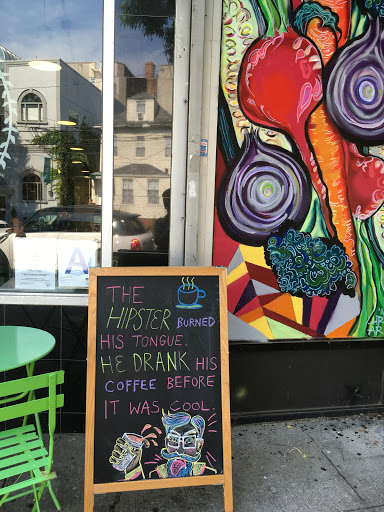 THE
HIPSTER BURNED
HIS TONGUE.
HE DRANK HIS
COFFEE BEFORE
IT WAS COOL.
A